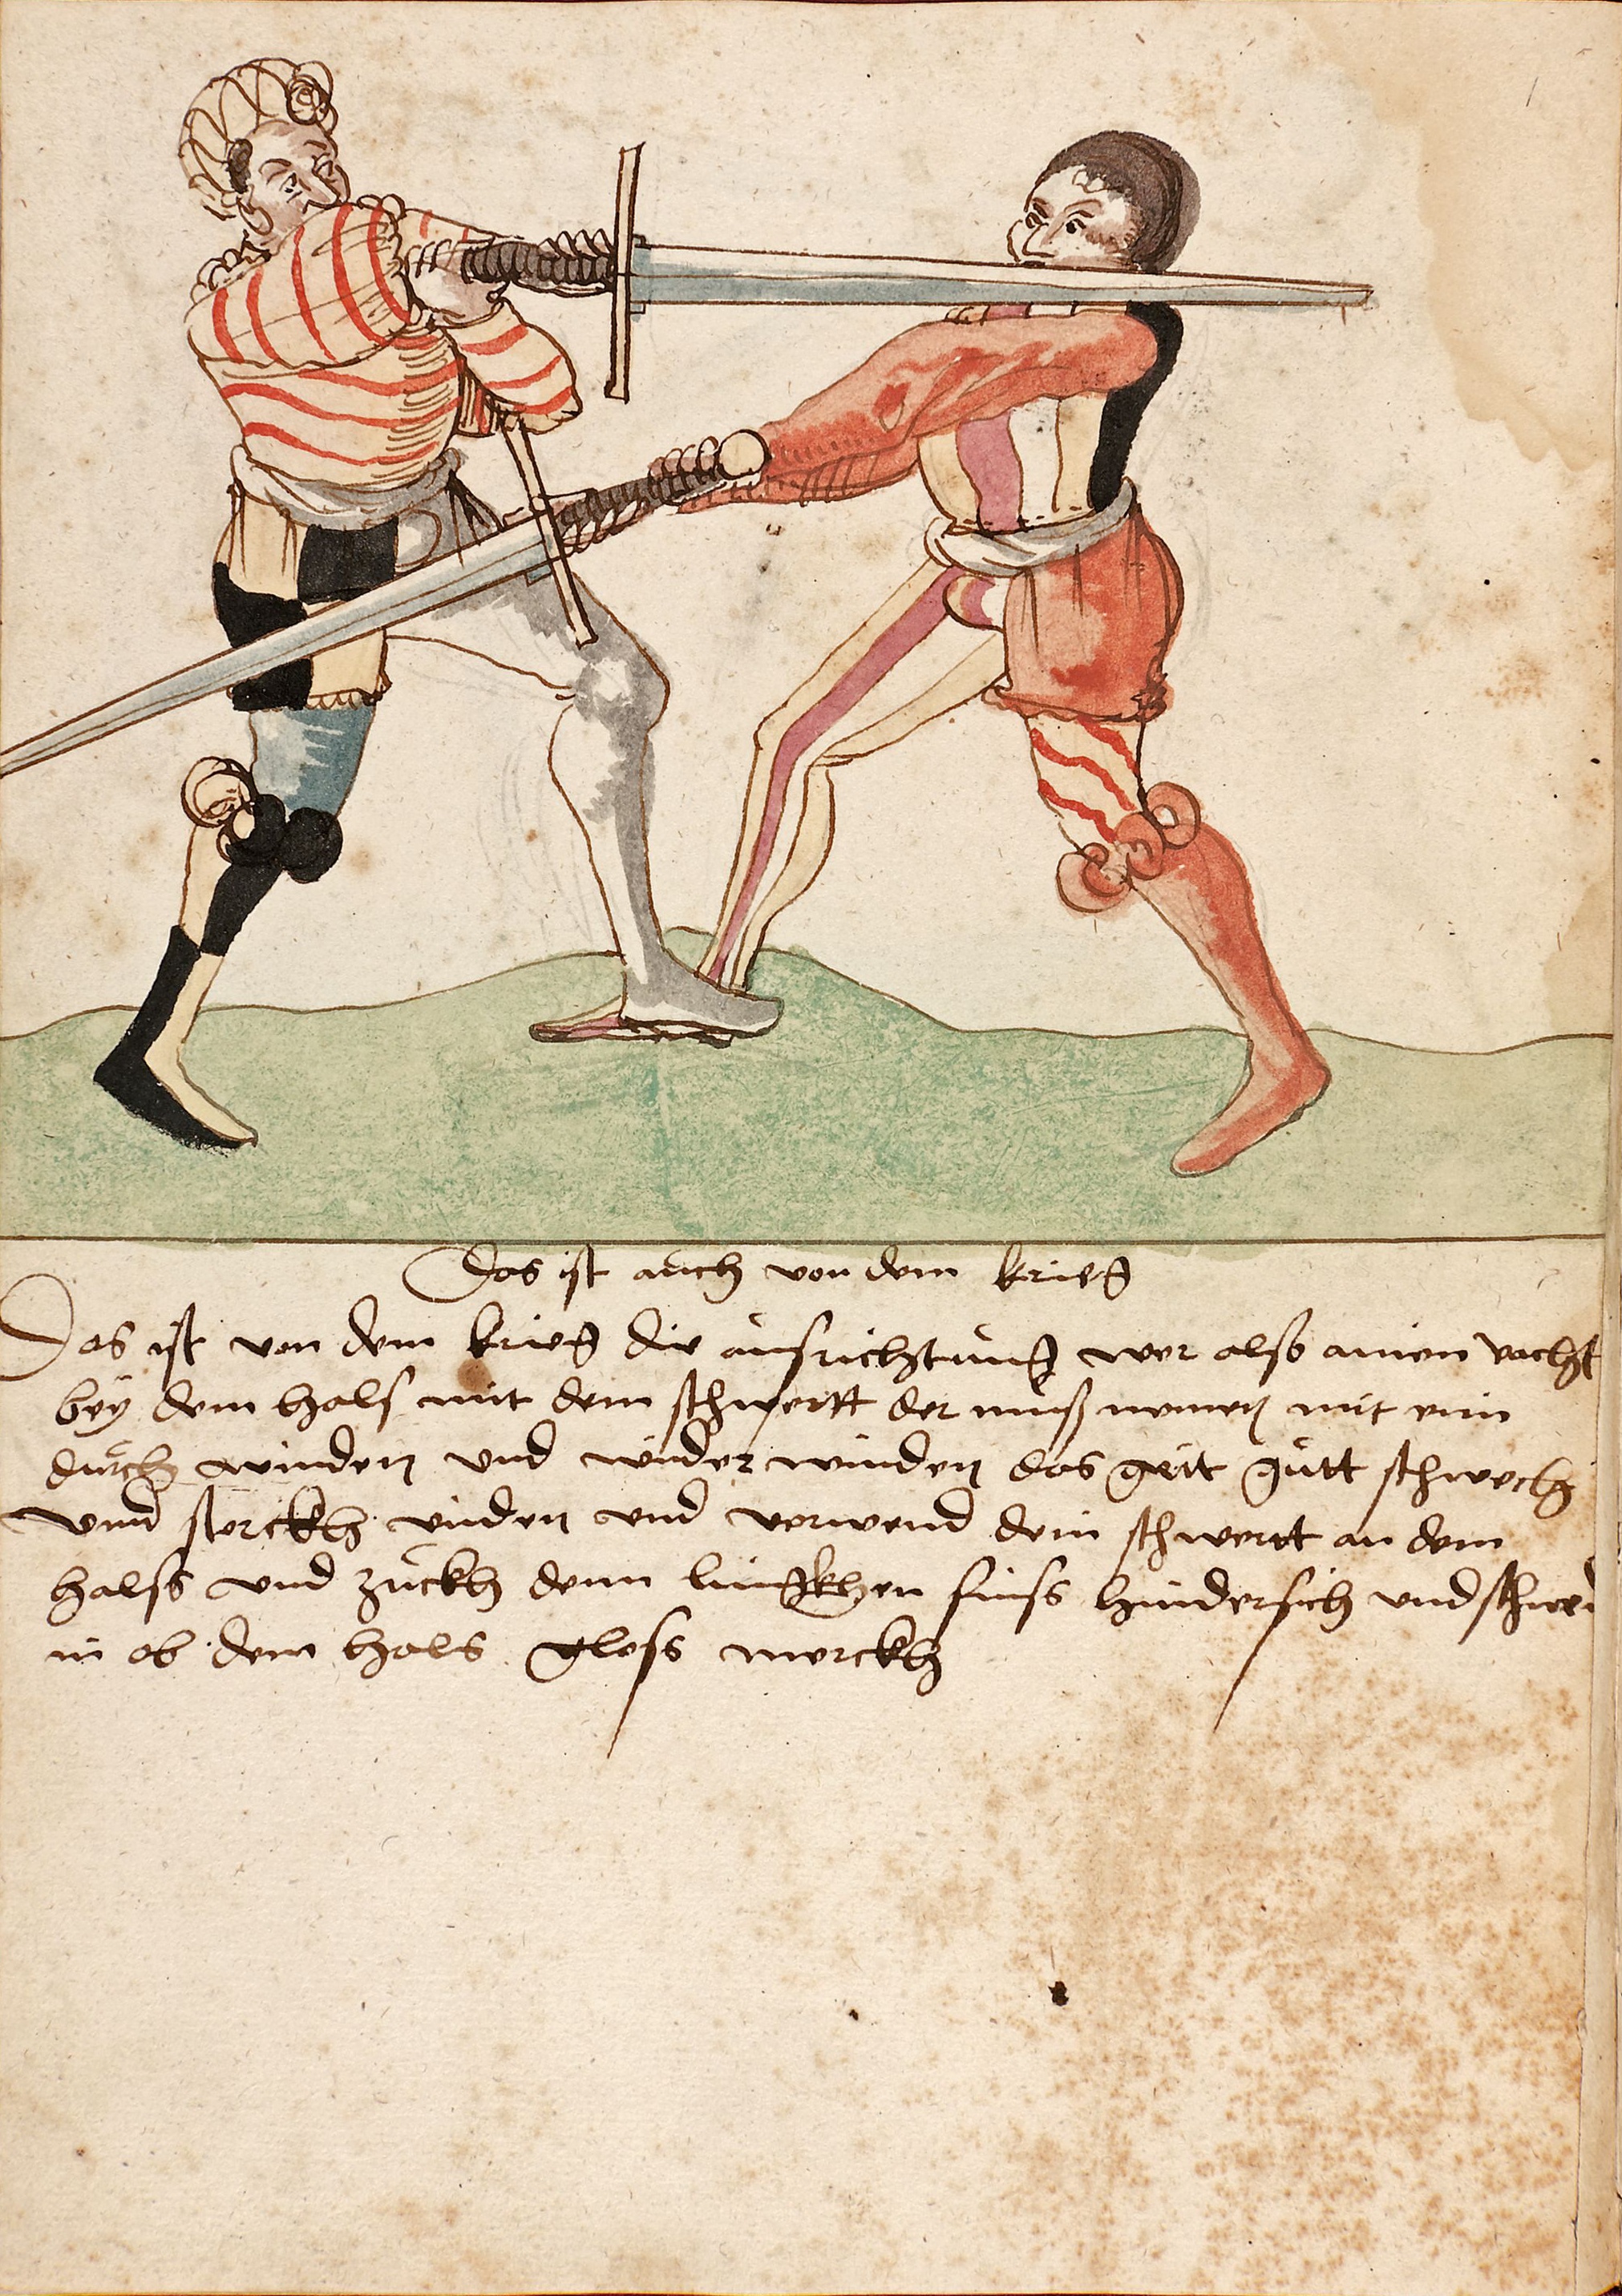 Das ist aüch von dem krieg
Das ist von dem krieg die aüsrichtüng wer also ainen vacht
bey dem hals mit dem schwertt der müß nemen mit ein
dürch winden und wider winden das geit gütt schwech
vnnd sterckh vinden und verwend dein schwertt an dem
halss und zückh denn lingkhen füss hindersich und schne
in ob dem hals gloss merckh